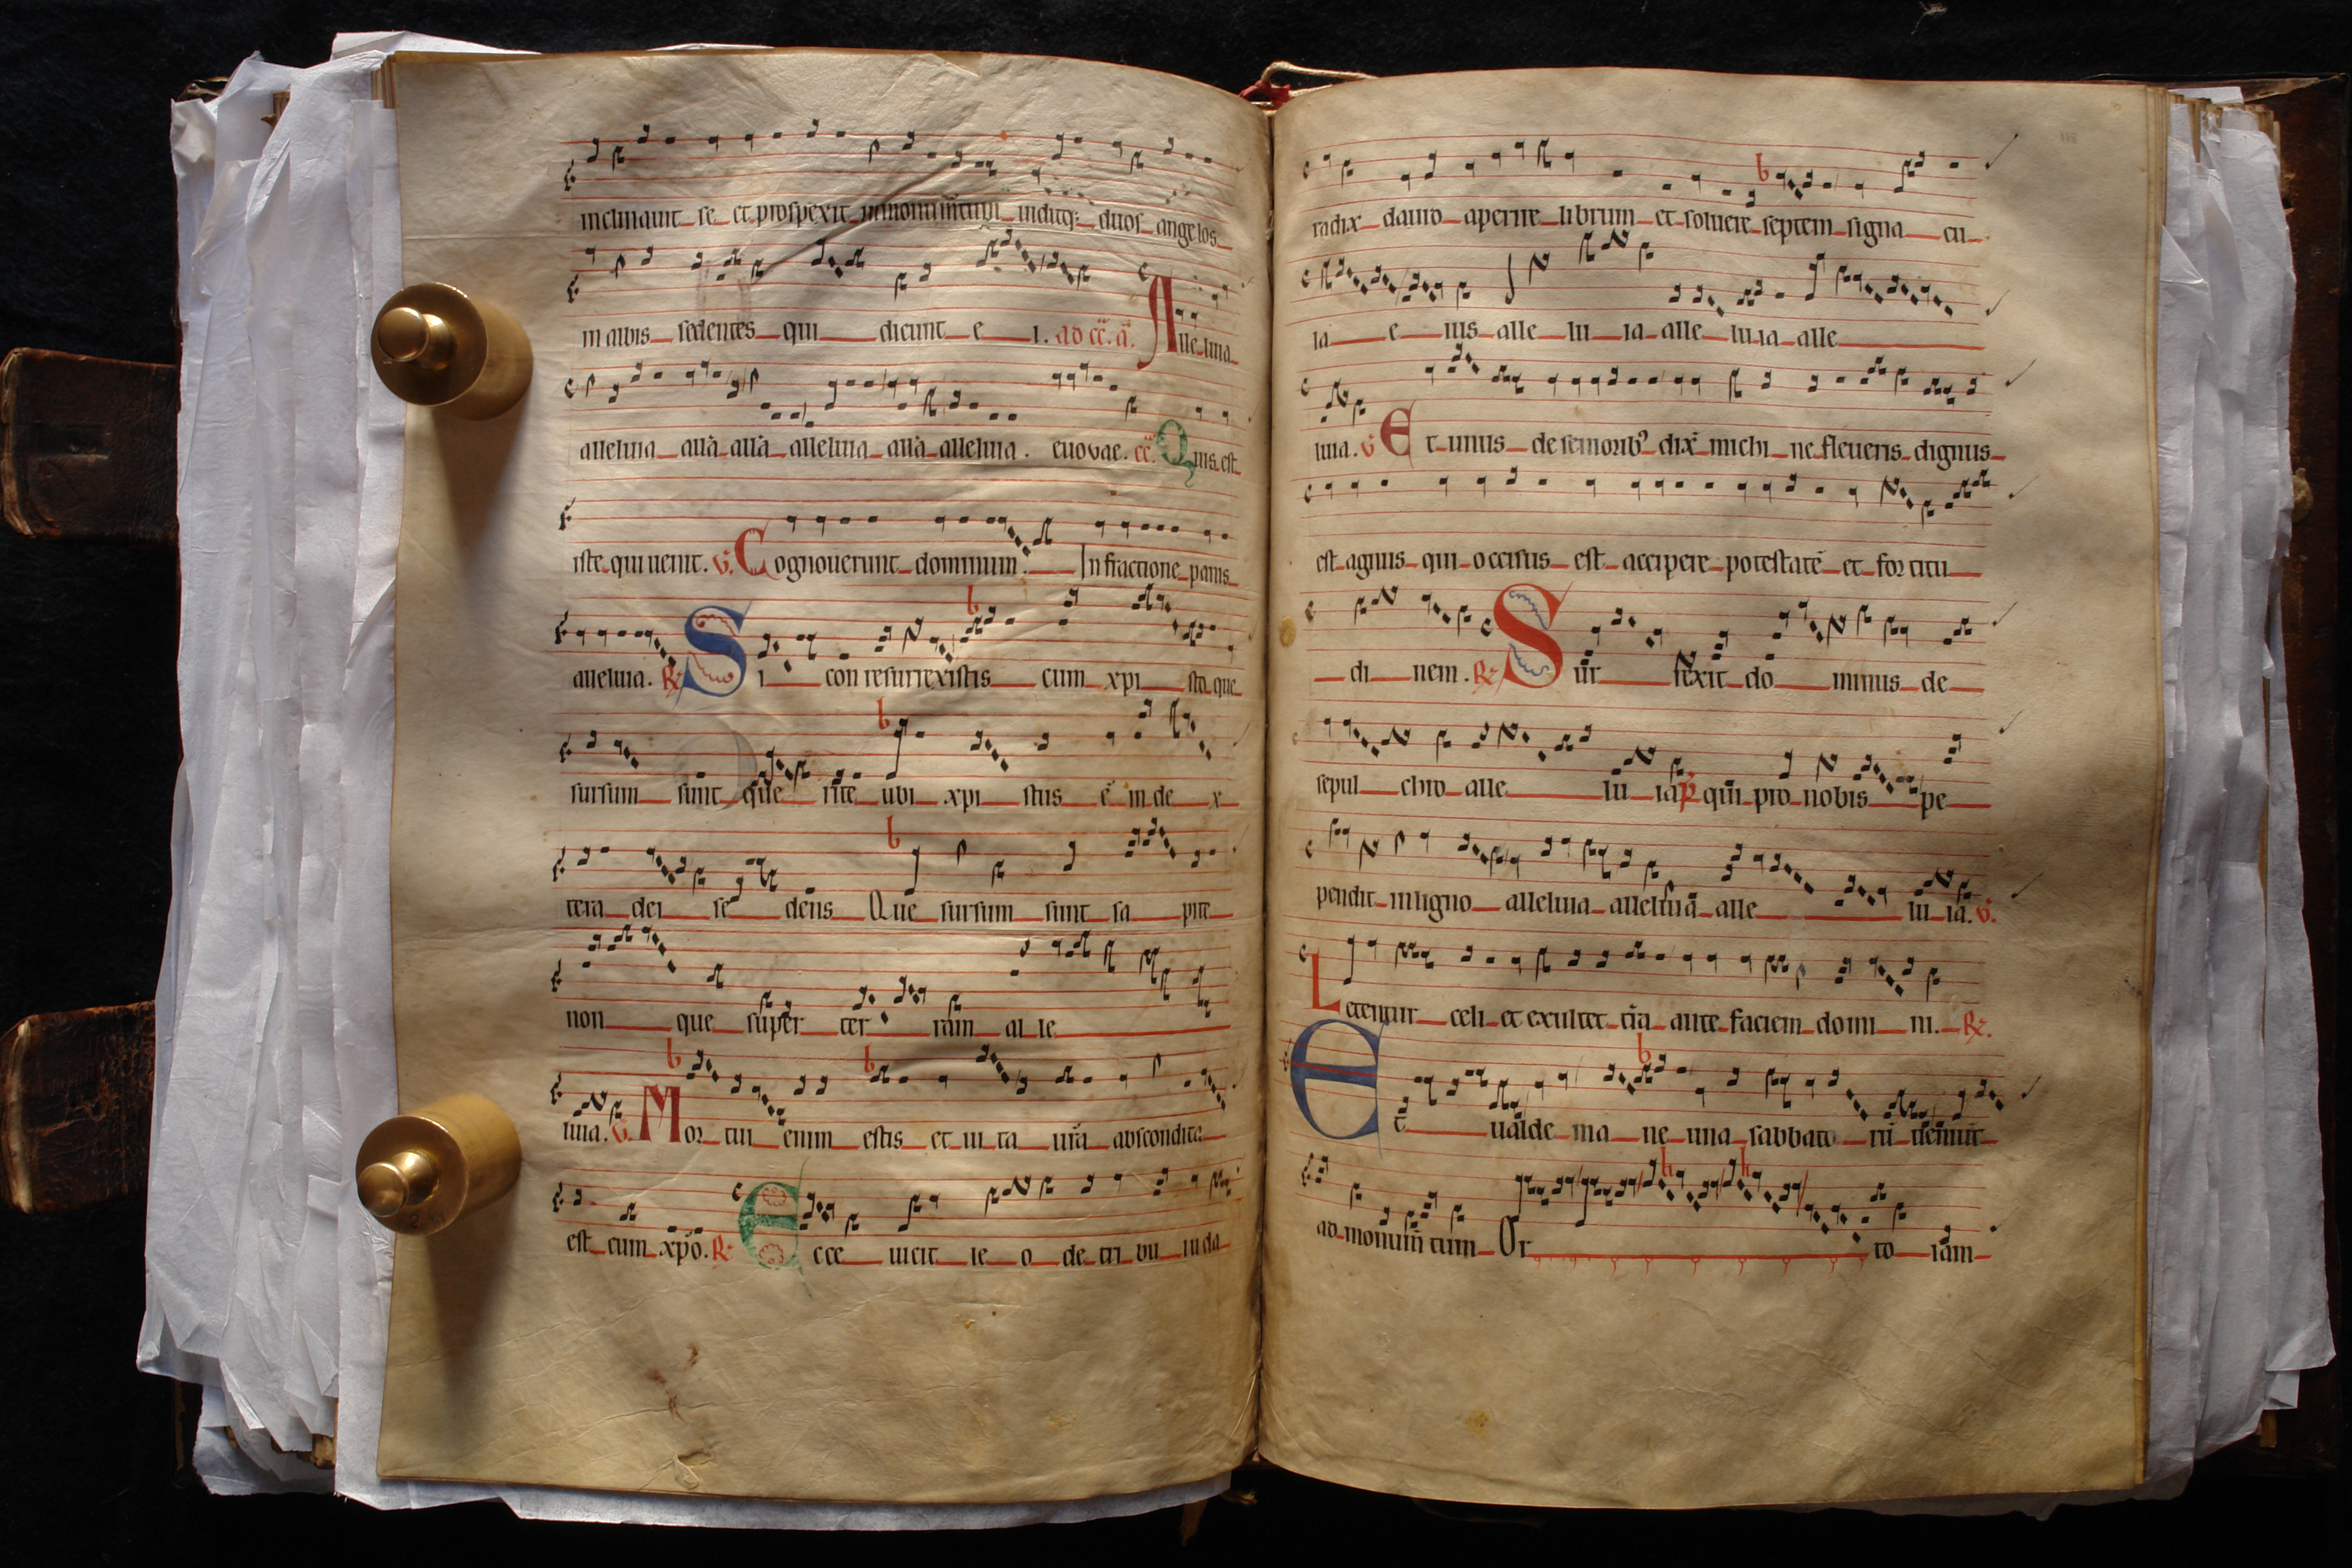 inclinauit se et prospexit in monum̄tum uiditq; duos angelos
in albis sedentes qui dicunt e i. ad cc̄. a. Alleluia
alleluia all̄a all̄a alleluia all̄a alleluia. euovae. cc̄. Quis est
iste qui uenit. v. Cognouerunt dominum. In fractione panis
alleluia. R. Si con resurrexistis cum xpi sto que
sursum sunt que rite ubi xpi stus ē in de x
tera dei se dens Que sursum sunt sa pite
non que super ter ram al le
luia. v. Mor tui enim estis et ui ta ur̄a abscondita
est cum xp̄o. R. Ecce uicit le o de tri bu iuda
radix dauid aperire librum et soluere septem signa cu
la e ius alle lu ia alle lu ia alle
luia. v. Et unus de seniorib; dix̄ michi ne fleueris dignus
est agnus qui occisus est accipere potestatē et for titu
di nem. R. Sur rexit do minus de
sepul chro alle lu ia p. qui pro nobis pe
pendit in ligno alleluia alleluia alle lu ia. v.
Letentur celi et exultet tr̄a ante faciem domi ni. R.
Et ualde ma ne una sabbato rū uenit
ad monum̄ tum Or to iam